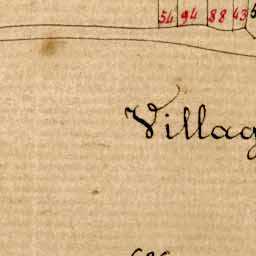 54 94 88 43
Villag